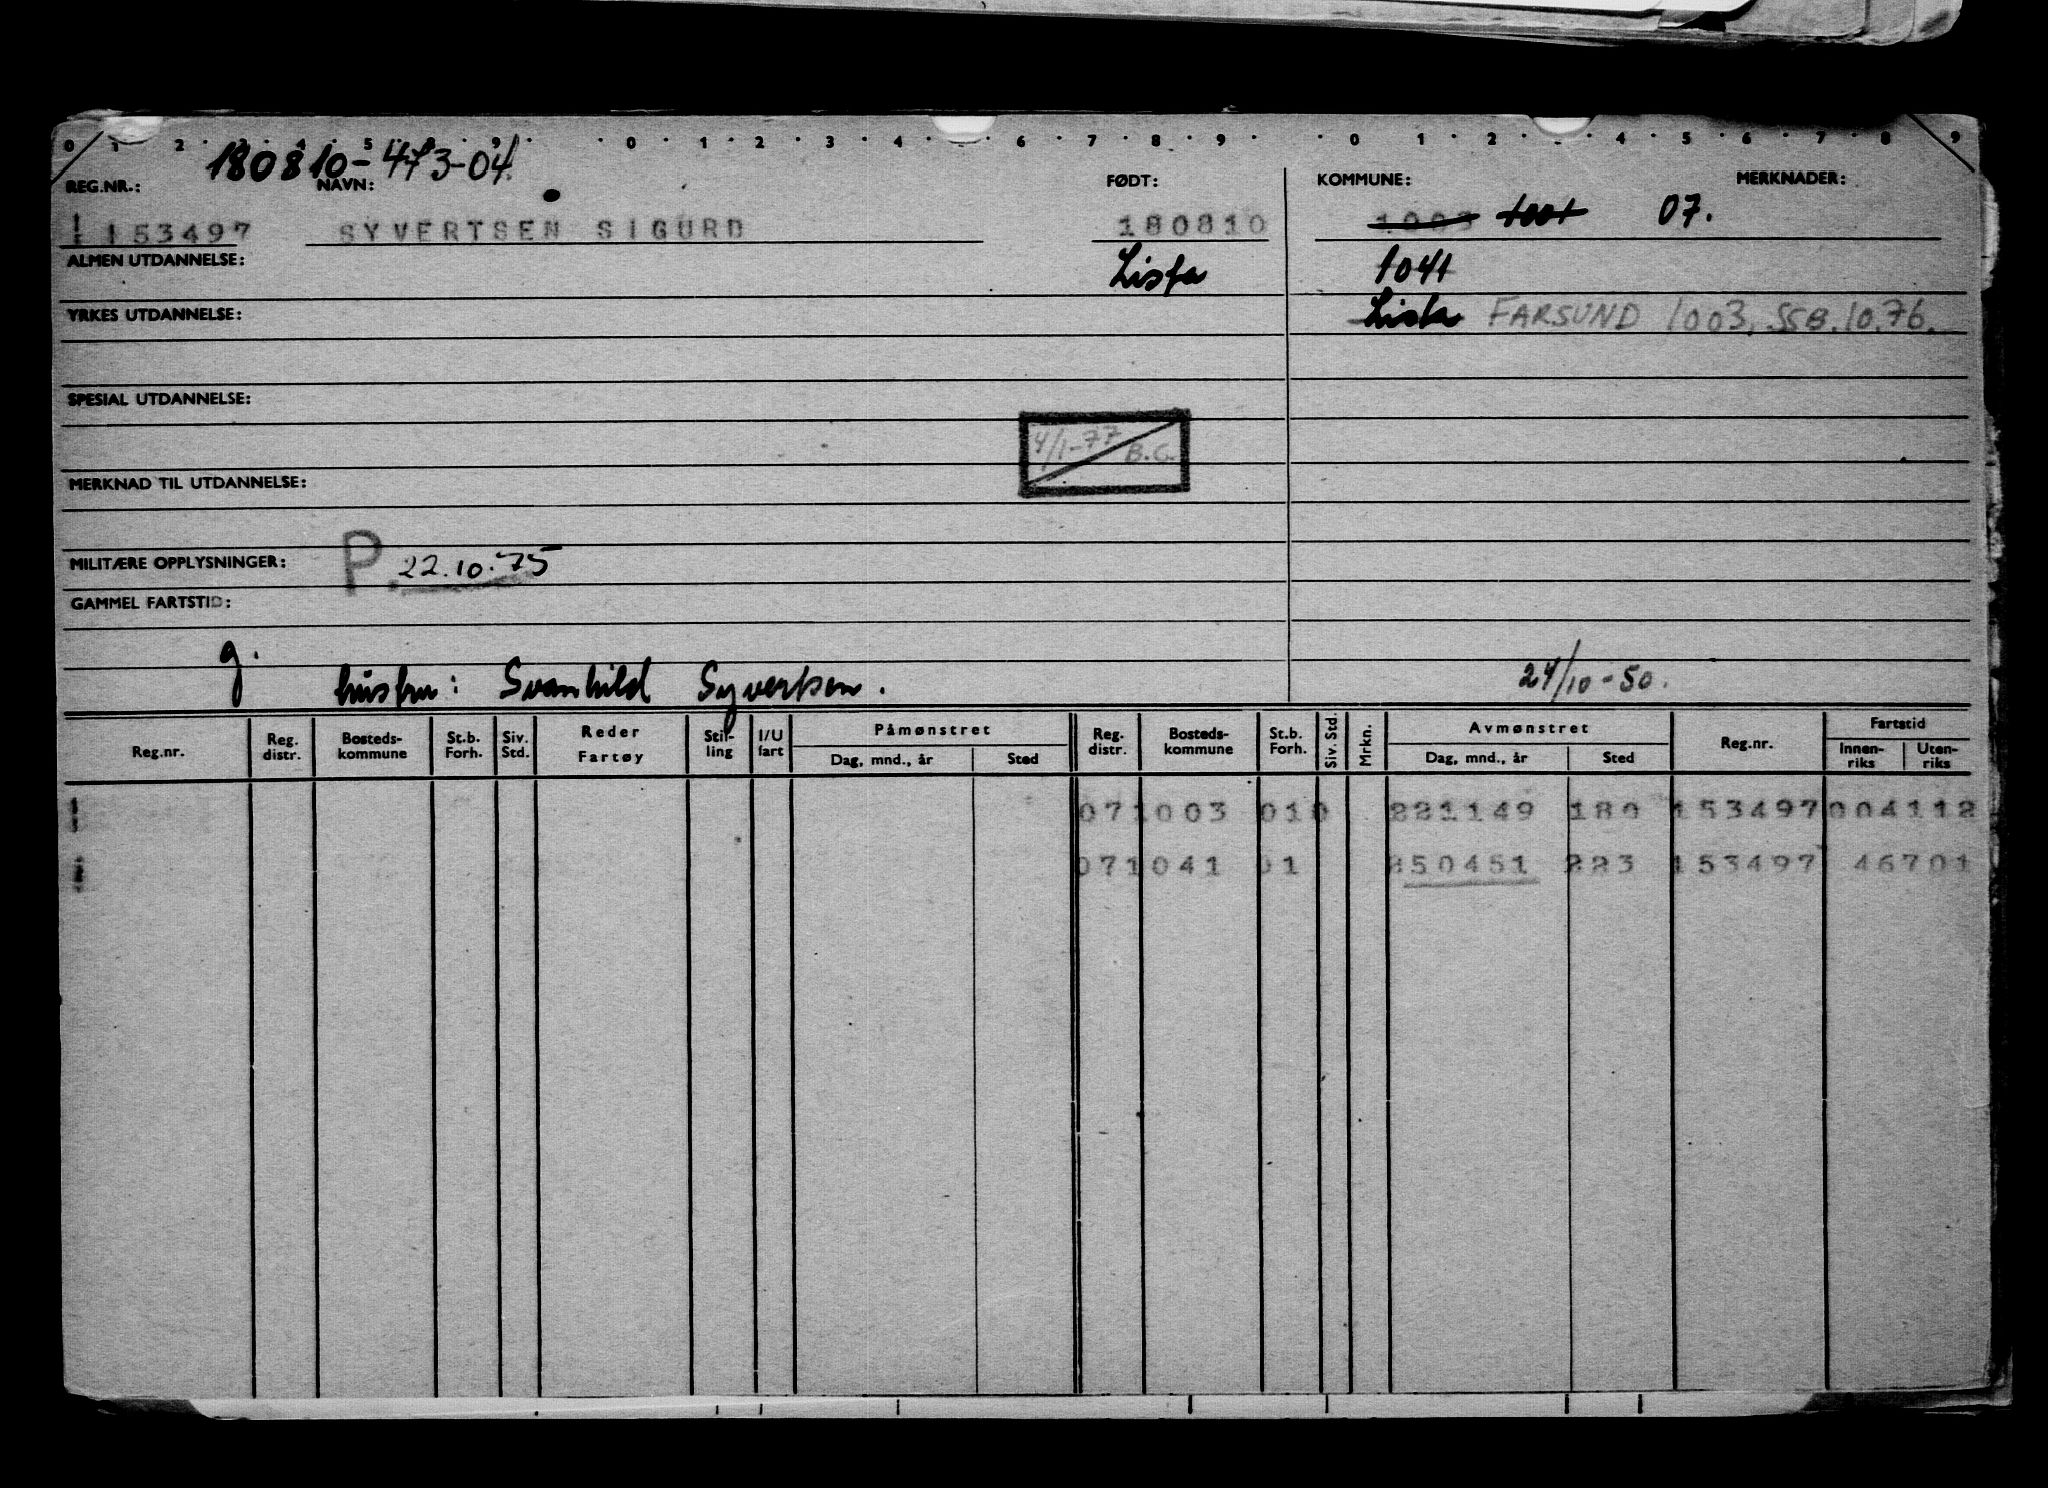 0 1 2 3 4 5 8 9 0 1 2 3 4 6 7 8 9 0 1 2 4 5 6 7 8 9
180810-473-04.
REG.NR.: NAVN: FØDT: KOMMUNE: MERKNADER:
153497 SYVERTSEN SIGURD 180810 1003 1001 07.
ALMEN UTDANNELSE: Lista 1041
YRKES UTDANNELSE: Lista FARSUND 1003, SSB.10.76.
SPESIAL UTDANNELSE:
4/1-77 B.G.
MERKNAD TIL UTDANNELSE:
MILITÆRE OPPLYSNINGER: P. 22.10.75
GAMMEL FARTSTID:
g.
hustru: Svanhild Syvertsen. 24/10-50.
Reg.nr. Reg. distr. Bosteds-kommune St.b. Forh. Siv. Std. Reder Fartøy Stil-ling I/U fart Påmønstret Dag, mnd., år Sted Reg. distr. Bosteds-kommune St.b. Forh. Siv. Std. Mrkn. Avmønstret Dag, mnd., år Sted Reg.nr. Fartstid Innen-riks Uten-riks
071003 010 221149 180 153497 004112
071041 01 250451 223 153497 46701